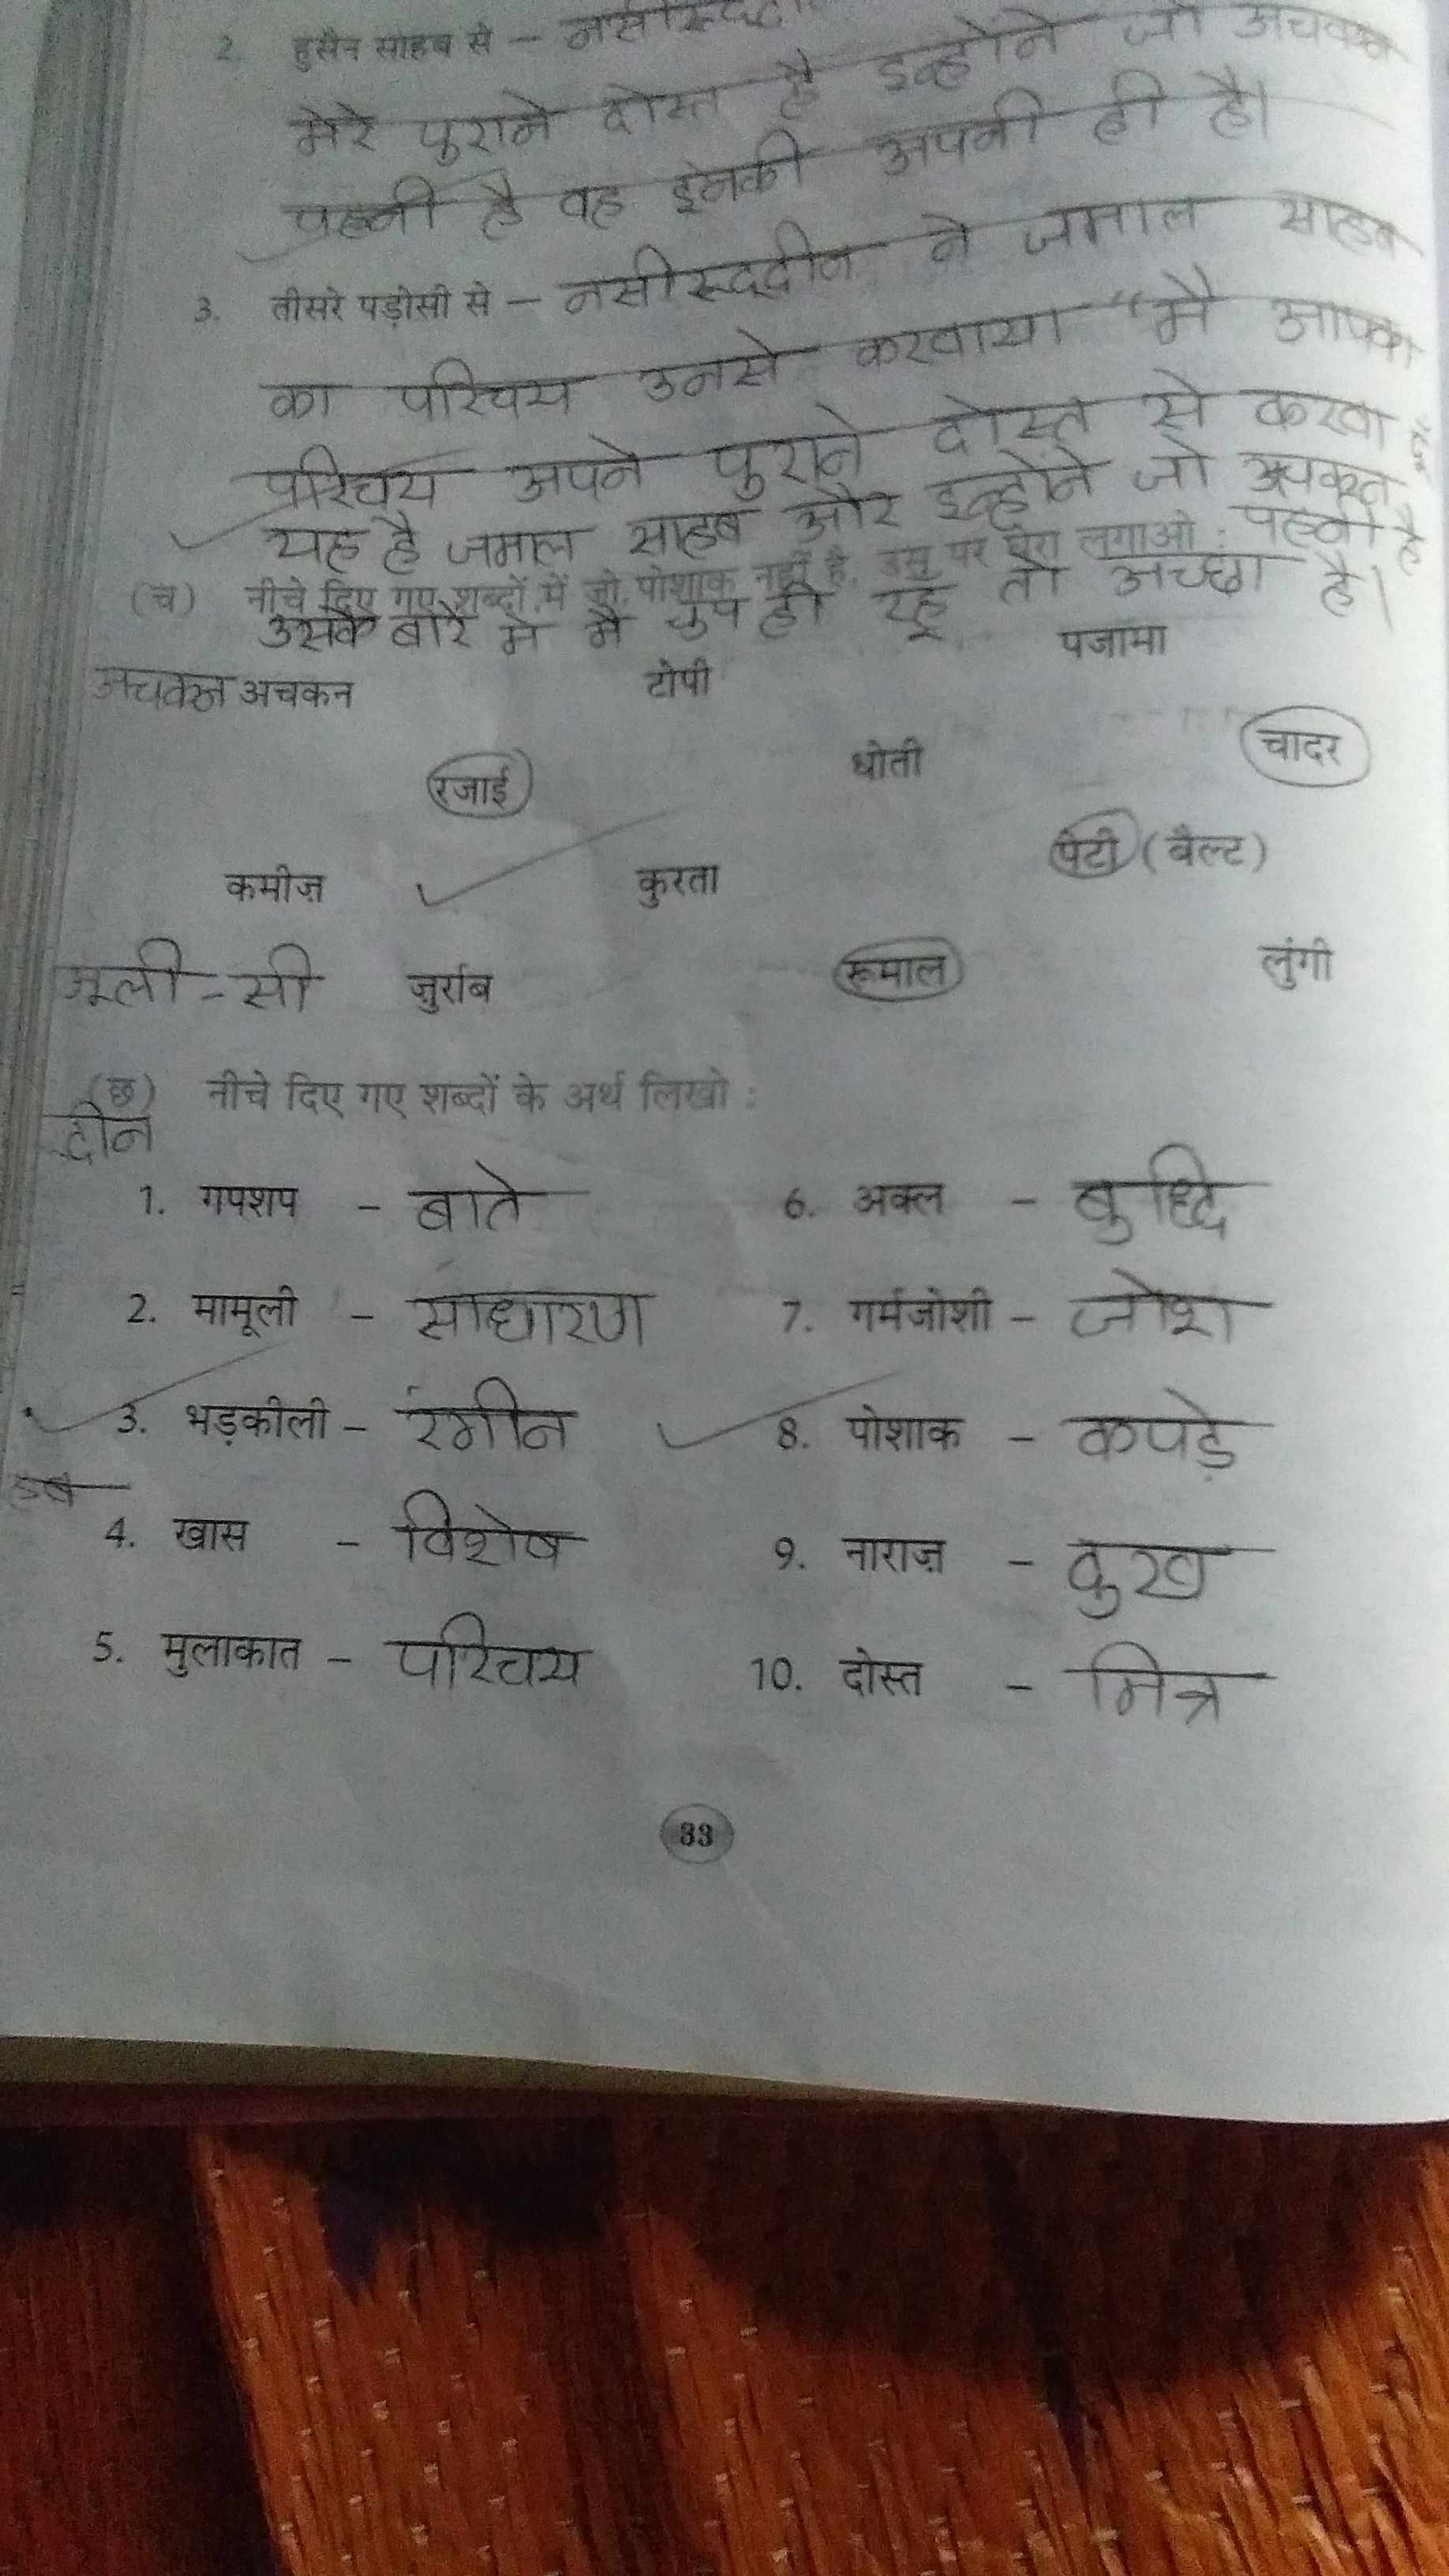 2. हुसैन साहब से –
मेरे पुराने दोस्त है इन्होने जो अचकन
पहनी है वह इनकी अपनी ही है।
3. तीसरे पड़ोसी से – नसीरूद्दीन ने जमाल साहब
का परिचय उनसे करवाया "मै आपका
परिचय अपने पुराने दोस्त से करवा दूँ
यह है जमाल साहब और इन्होंने जो अचकन पहनी है
(च) नीचे दिए गए शब्दों में जो पोशाक नहीं है, उस पर घेरा लगाओ :
उसके बारे मे मै चुप ही रहू तो अच्छा है।
अचकन अचकन टोपी पजामा
रजाई धोती चादर
कमीज़ कुरता पेटी (बैल्ट)
मूली - सी जुर्राब रूमाल लुंगी
(छ) नीचे दिए गए शब्दों के अर्थ लिखो :
दीन
1. गपशप – बाते 6. अक्ल – बुद्धि
2. मामूली – साधारण 7. गर्मजोशी – जोश
3. भड़कीली – रंगीन 8. पोशाक – कपड़े
4. खास – विशेष 9. नाराज़ – दुख
5. मुलाकात – परिचय 10. दोस्त – मित्र
33